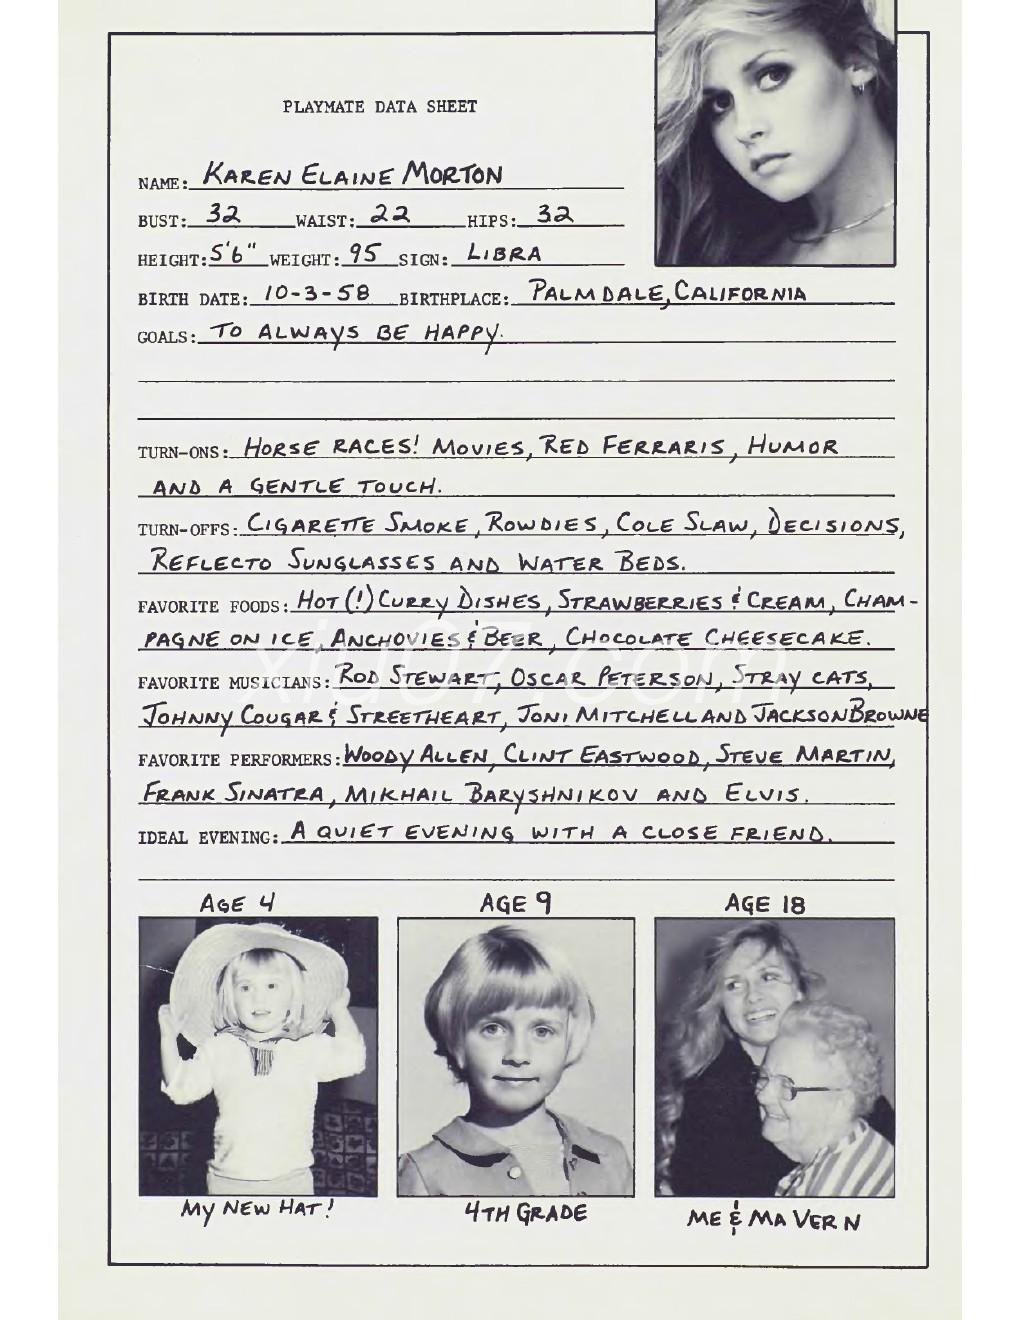 PLAYMATE DATA SHEET
NAME: KAREN ELAINE MORTON
BUST: 32 WAIST: 22 HIPS: 32
HEIGHT: 5'6" WEIGHT: 95 SIGN: LIBRA
BIRTH DATE: 10-3-58 BIRTHPLACE: PALMDALE, CALIFORNIA
GOALS: TO ALWAYS BE HAPPY.
TURN-ONS: HORSE RACES! MOVIES, RED FERRARIS, HUMOR
AND A GENTLE TOUCH.
TURN-OFFS: CIGARETTE SMOKE, ROWDIES, COLE SLAW, DECISIONS,
REFLECTO SUNGLASSES AND WATER BEDS.
FAVORITE FOODS: HOT (!) CURRY DISHES, STRAWBERRIES & CREAM, CHAM-
PAGNE ON ICE, ANCHOVIES & BEER, CHOCOLATE CHEESECAKE.
xiu07.com
FAVORITE MUSICIANS: ROD STEWART, OSCAR PETERSON, STRAY CATS,
JOHNNY COUGAR & STREETHEART, JONI MITCHELL AND JACKSON BROWNE
FAVORITE PERFORMERS: WOODY ALLEN, CLINT EASTWOOD, STEVE MARTIN,
FRANK SINATRA, MIKHAIL BARYSHNIKOV AND ELVIS.
IDEAL EVENING: A QUIET EVENING WITH A CLOSE FRIEND.
AGE 4 AGE 9 AGE 18
MY NEW HAT! 4TH GRADE ME & MA VERN